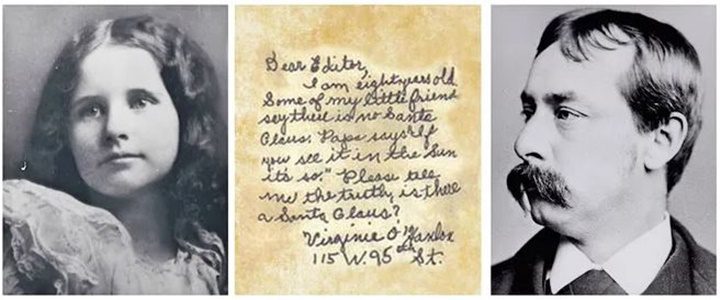 Dear Editor,
I am eight years old
Some of my little friend
say there is no Santa
Claus. Papa says "If
you see it in the Sun
it's so." Please tell
me the truth, is there
a Santa Claus?
Virginia O'Hanlon
115 W. 95th St.